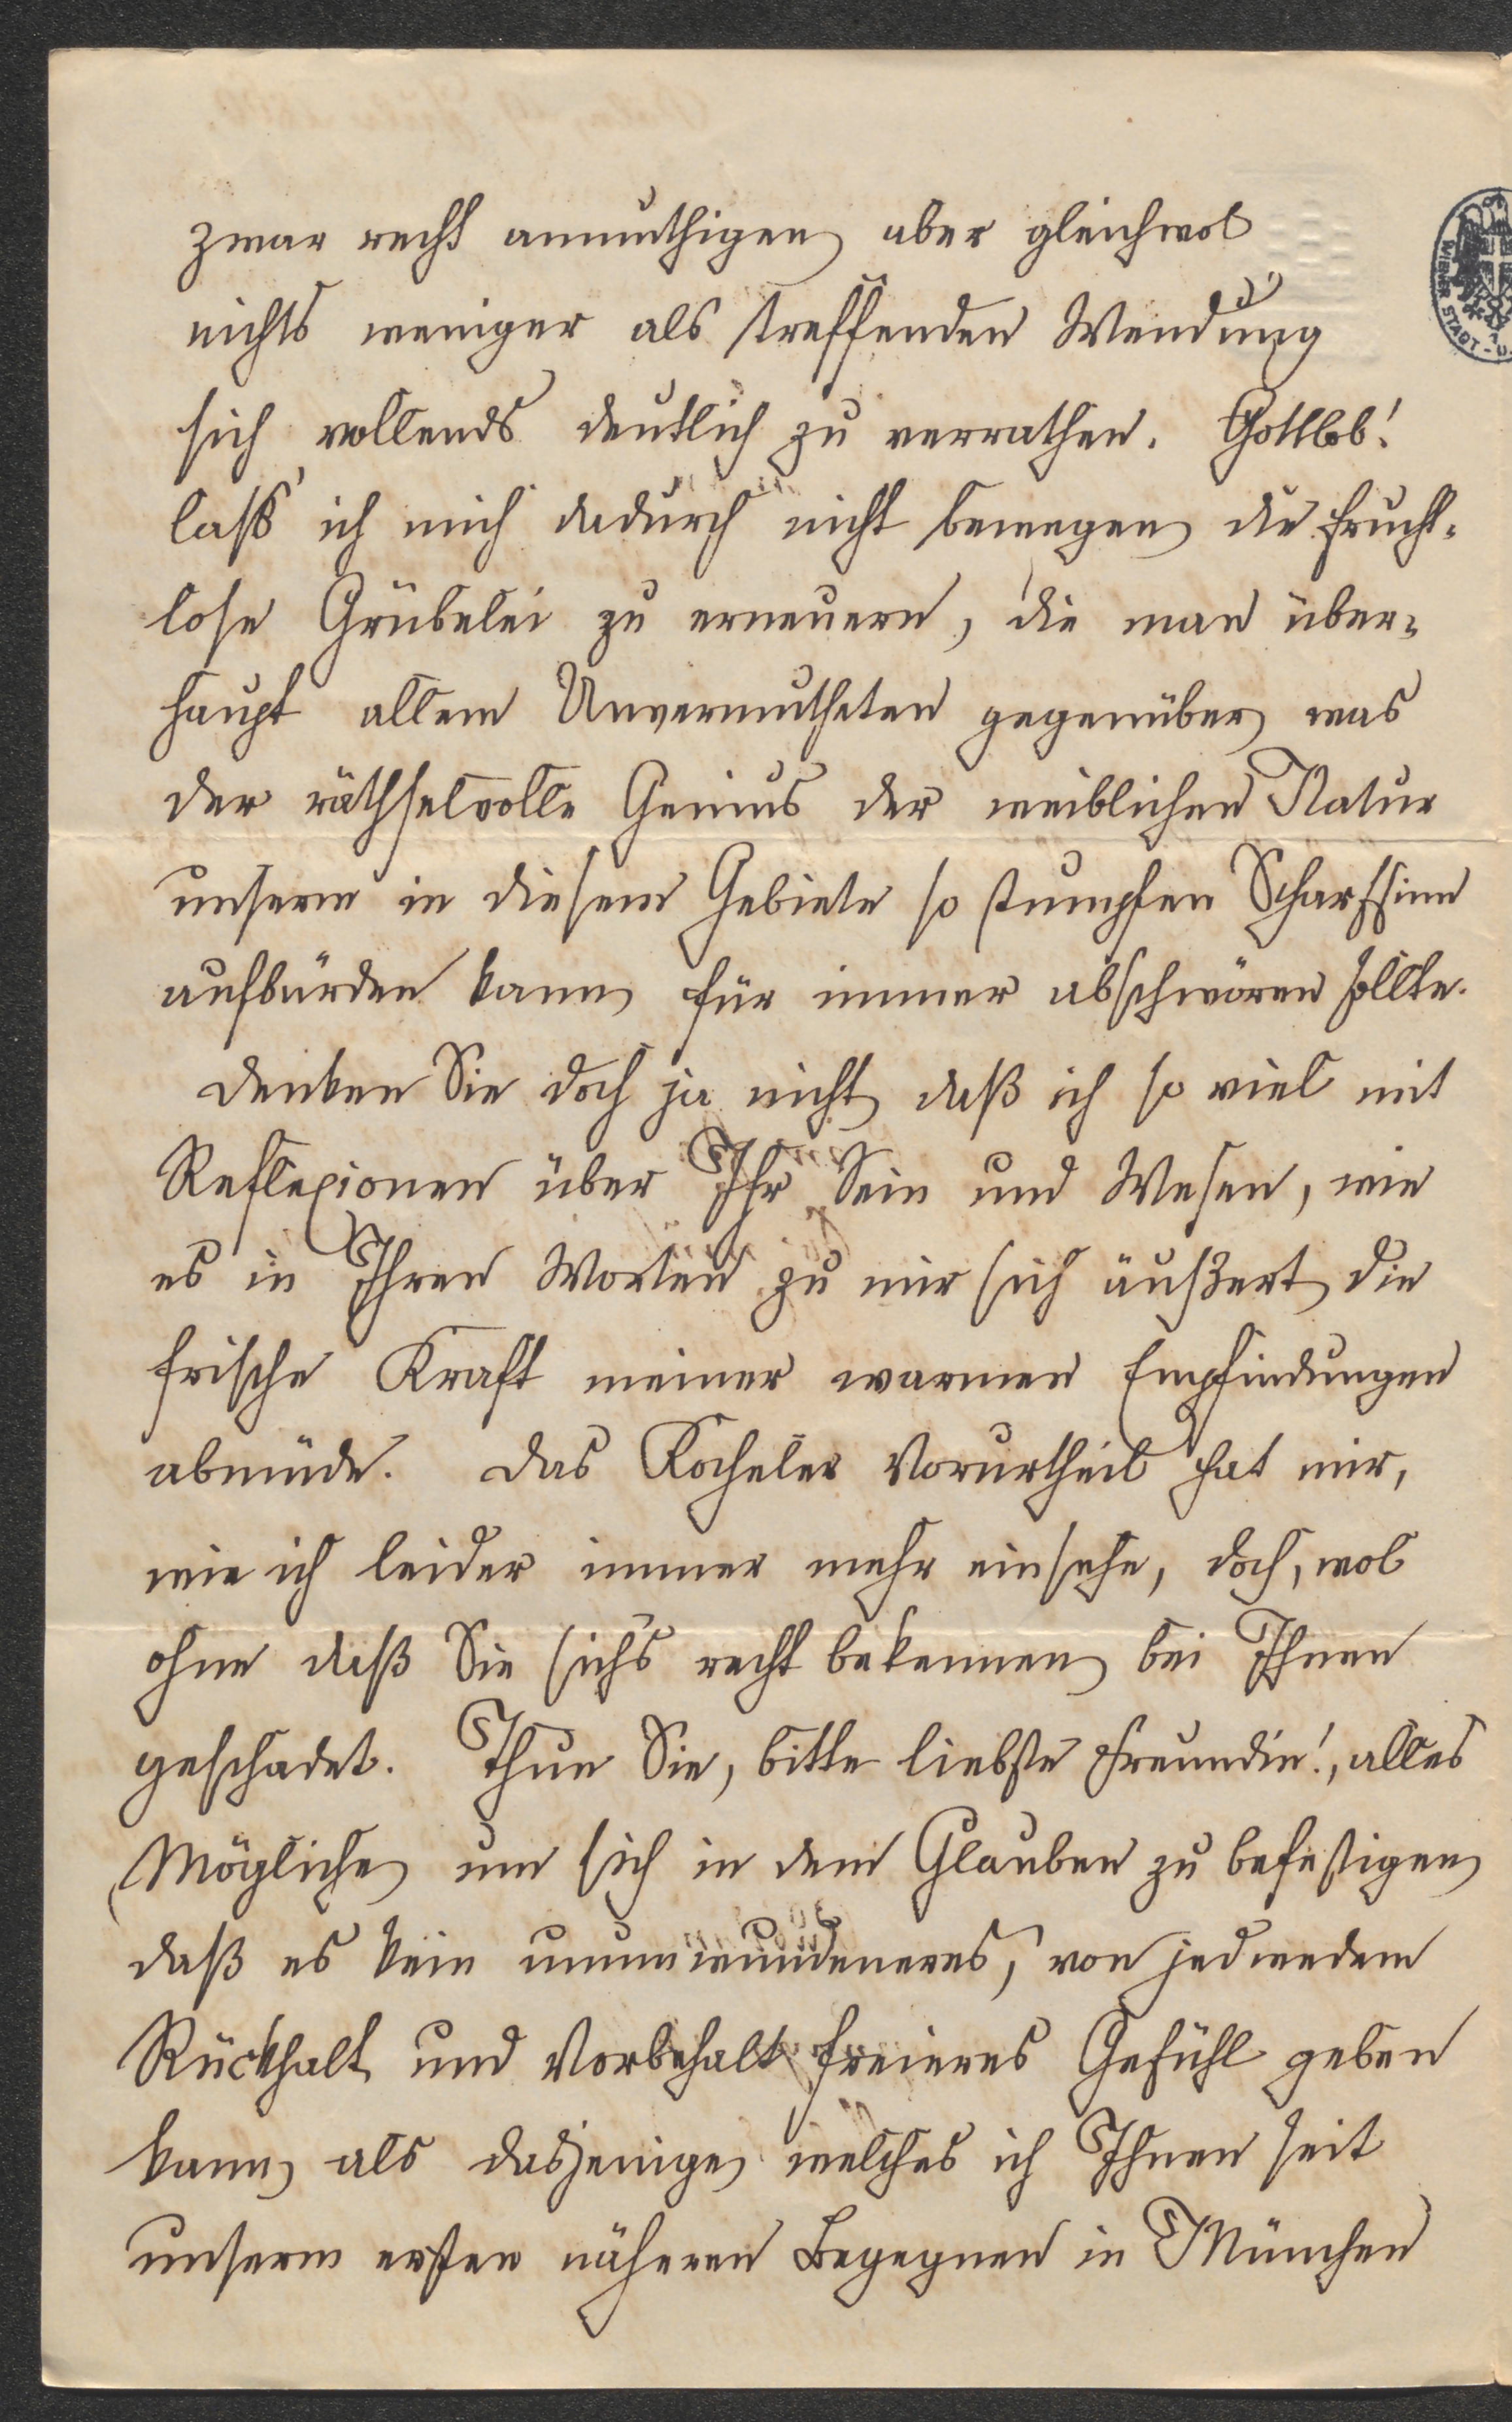 zwar recht anmuthigen aber gleichwol
nichts weniger als treffenden Wendung
sich vollends deutlich zu verrathen. Gottlob!
laß' ich mich dadurch nicht bewegen die frucht-
lose Grübelei zu erneuern, die man über-
haupt allem Unvermutheten gegenüber was
der räthselvolle Genius der weiblichen Natur
unserm in diesem Gebiete so stumpfen Scharfsinn
aufbürden kann für immer abschwören sollte.
Denken Sie doch ja nicht daß ich so viel mit
Reflexionen über Ihr Sein und Wesen, wie
es in Ihren Worten zu mir sich äußert die
frische Kraft meiner warmen Empfindungen
abmüde. Das Kocheler Vorurtheil hat mir,
wie ich leider immer mehr einsehe, doch, wol
ohne daß Sie sich's recht bekennen bei Ihnen
geschadet. Thun Sie, bitte liebste Freundin!, alles
Mögliche um sich in dem Glauben zu befestigen
daß es kein unumwundeneres, von jedwedem
Rückhalt und Vorbehalt freieres Gefühl geben
kann als dasjenige welches ich Ihnen seit
unserm ersten näheren Begegnen in München
WIENER STADT-U